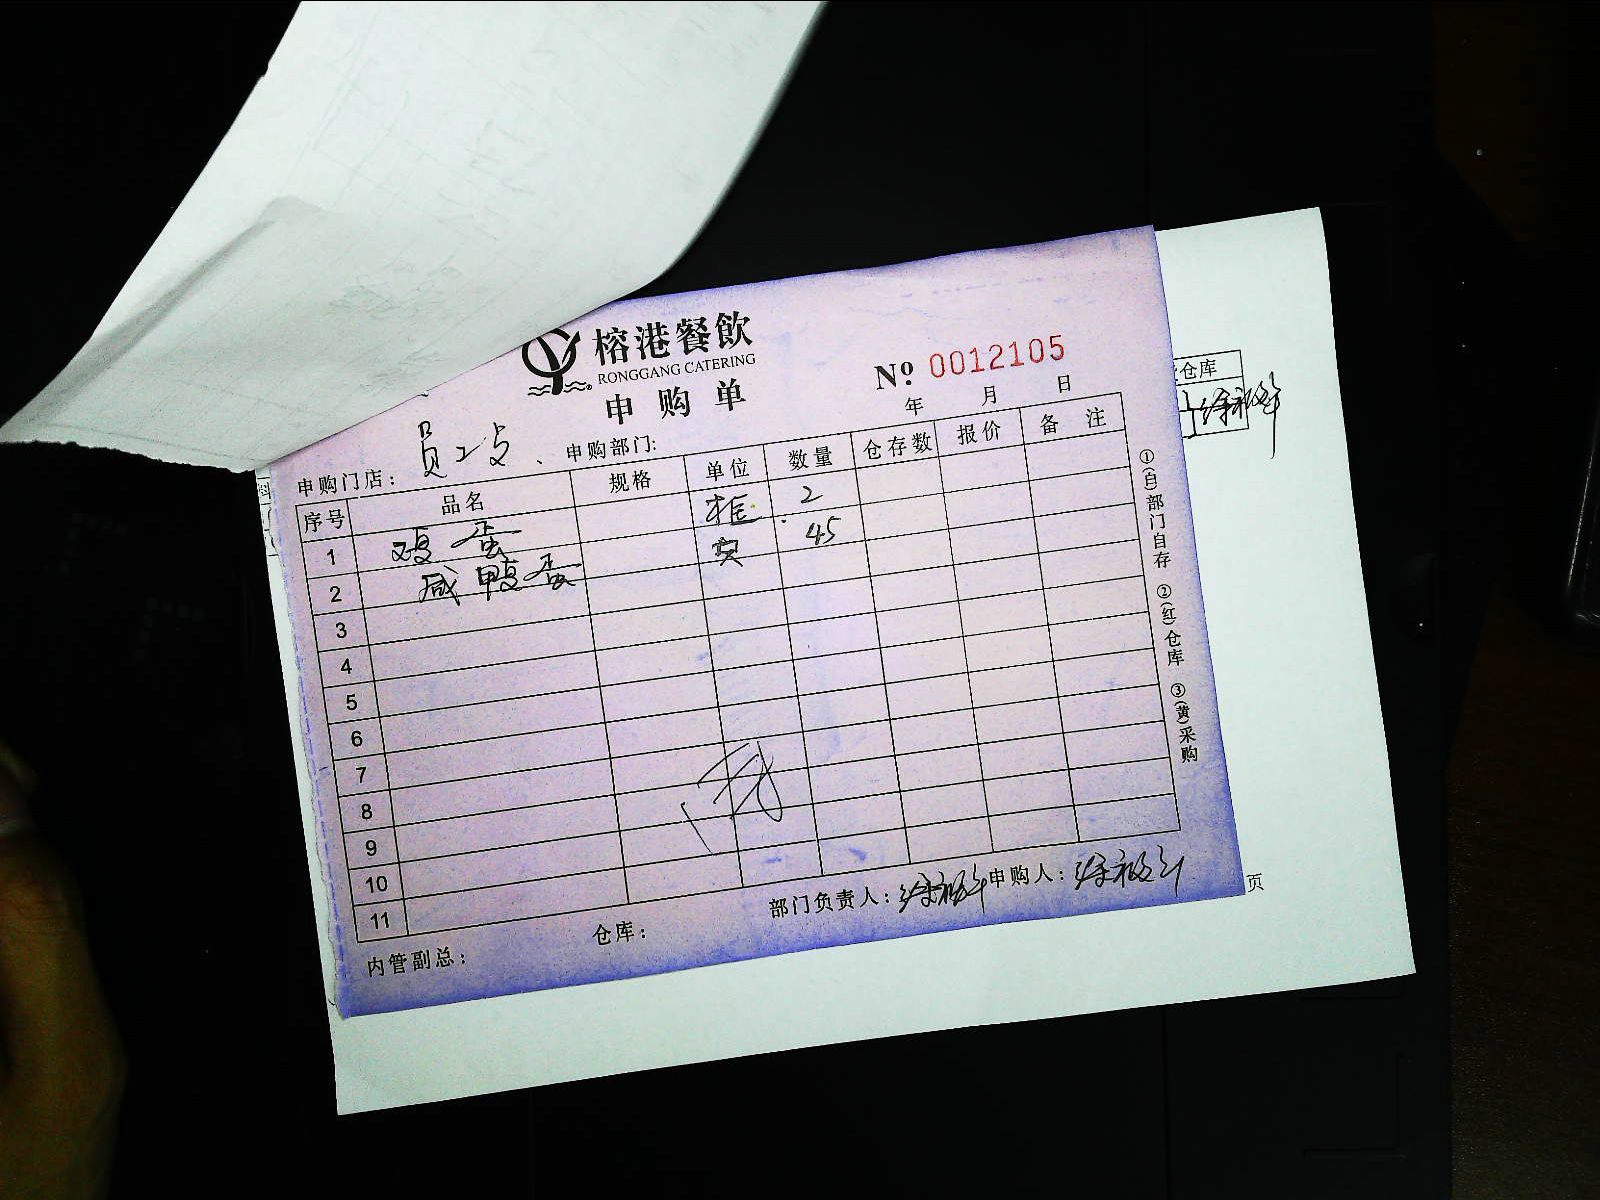 榕港餐飲
RONGGANG CATERING
申购单
№ 0012105
年 月 日
申购门店： 员工 、 申购部门:
序号 品名 规格 单位 数量 仓存数 报价 备注
1 鸡蛋 框 2
2 咸鸭蛋 45
3
4
5
6
7
8
9
10
11
内管副总： 仓库： 部门负责人： 申购人：
①(白)部门自存 ②(红)仓库 ③(黄)采购
仓库
页